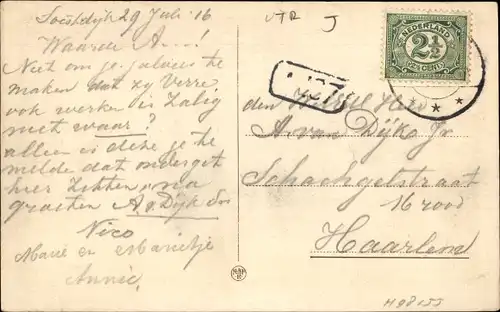 Soestdijk 29 Juli '16
Waarde A...!
Niet om je jaloers te
maken dat zy Verre
ook werken is Zalig
niet waar?
alleen is deze je te
melde dat onderget
hier Zitten, na
groeten A v Dyk Sr
Nico
Marie en Marietje
Annie
UTR J
NEDERLAND
2½
2½ CENT
den
A. van Dijk Jr
Schachgelstraat
16 rood
Haarlem